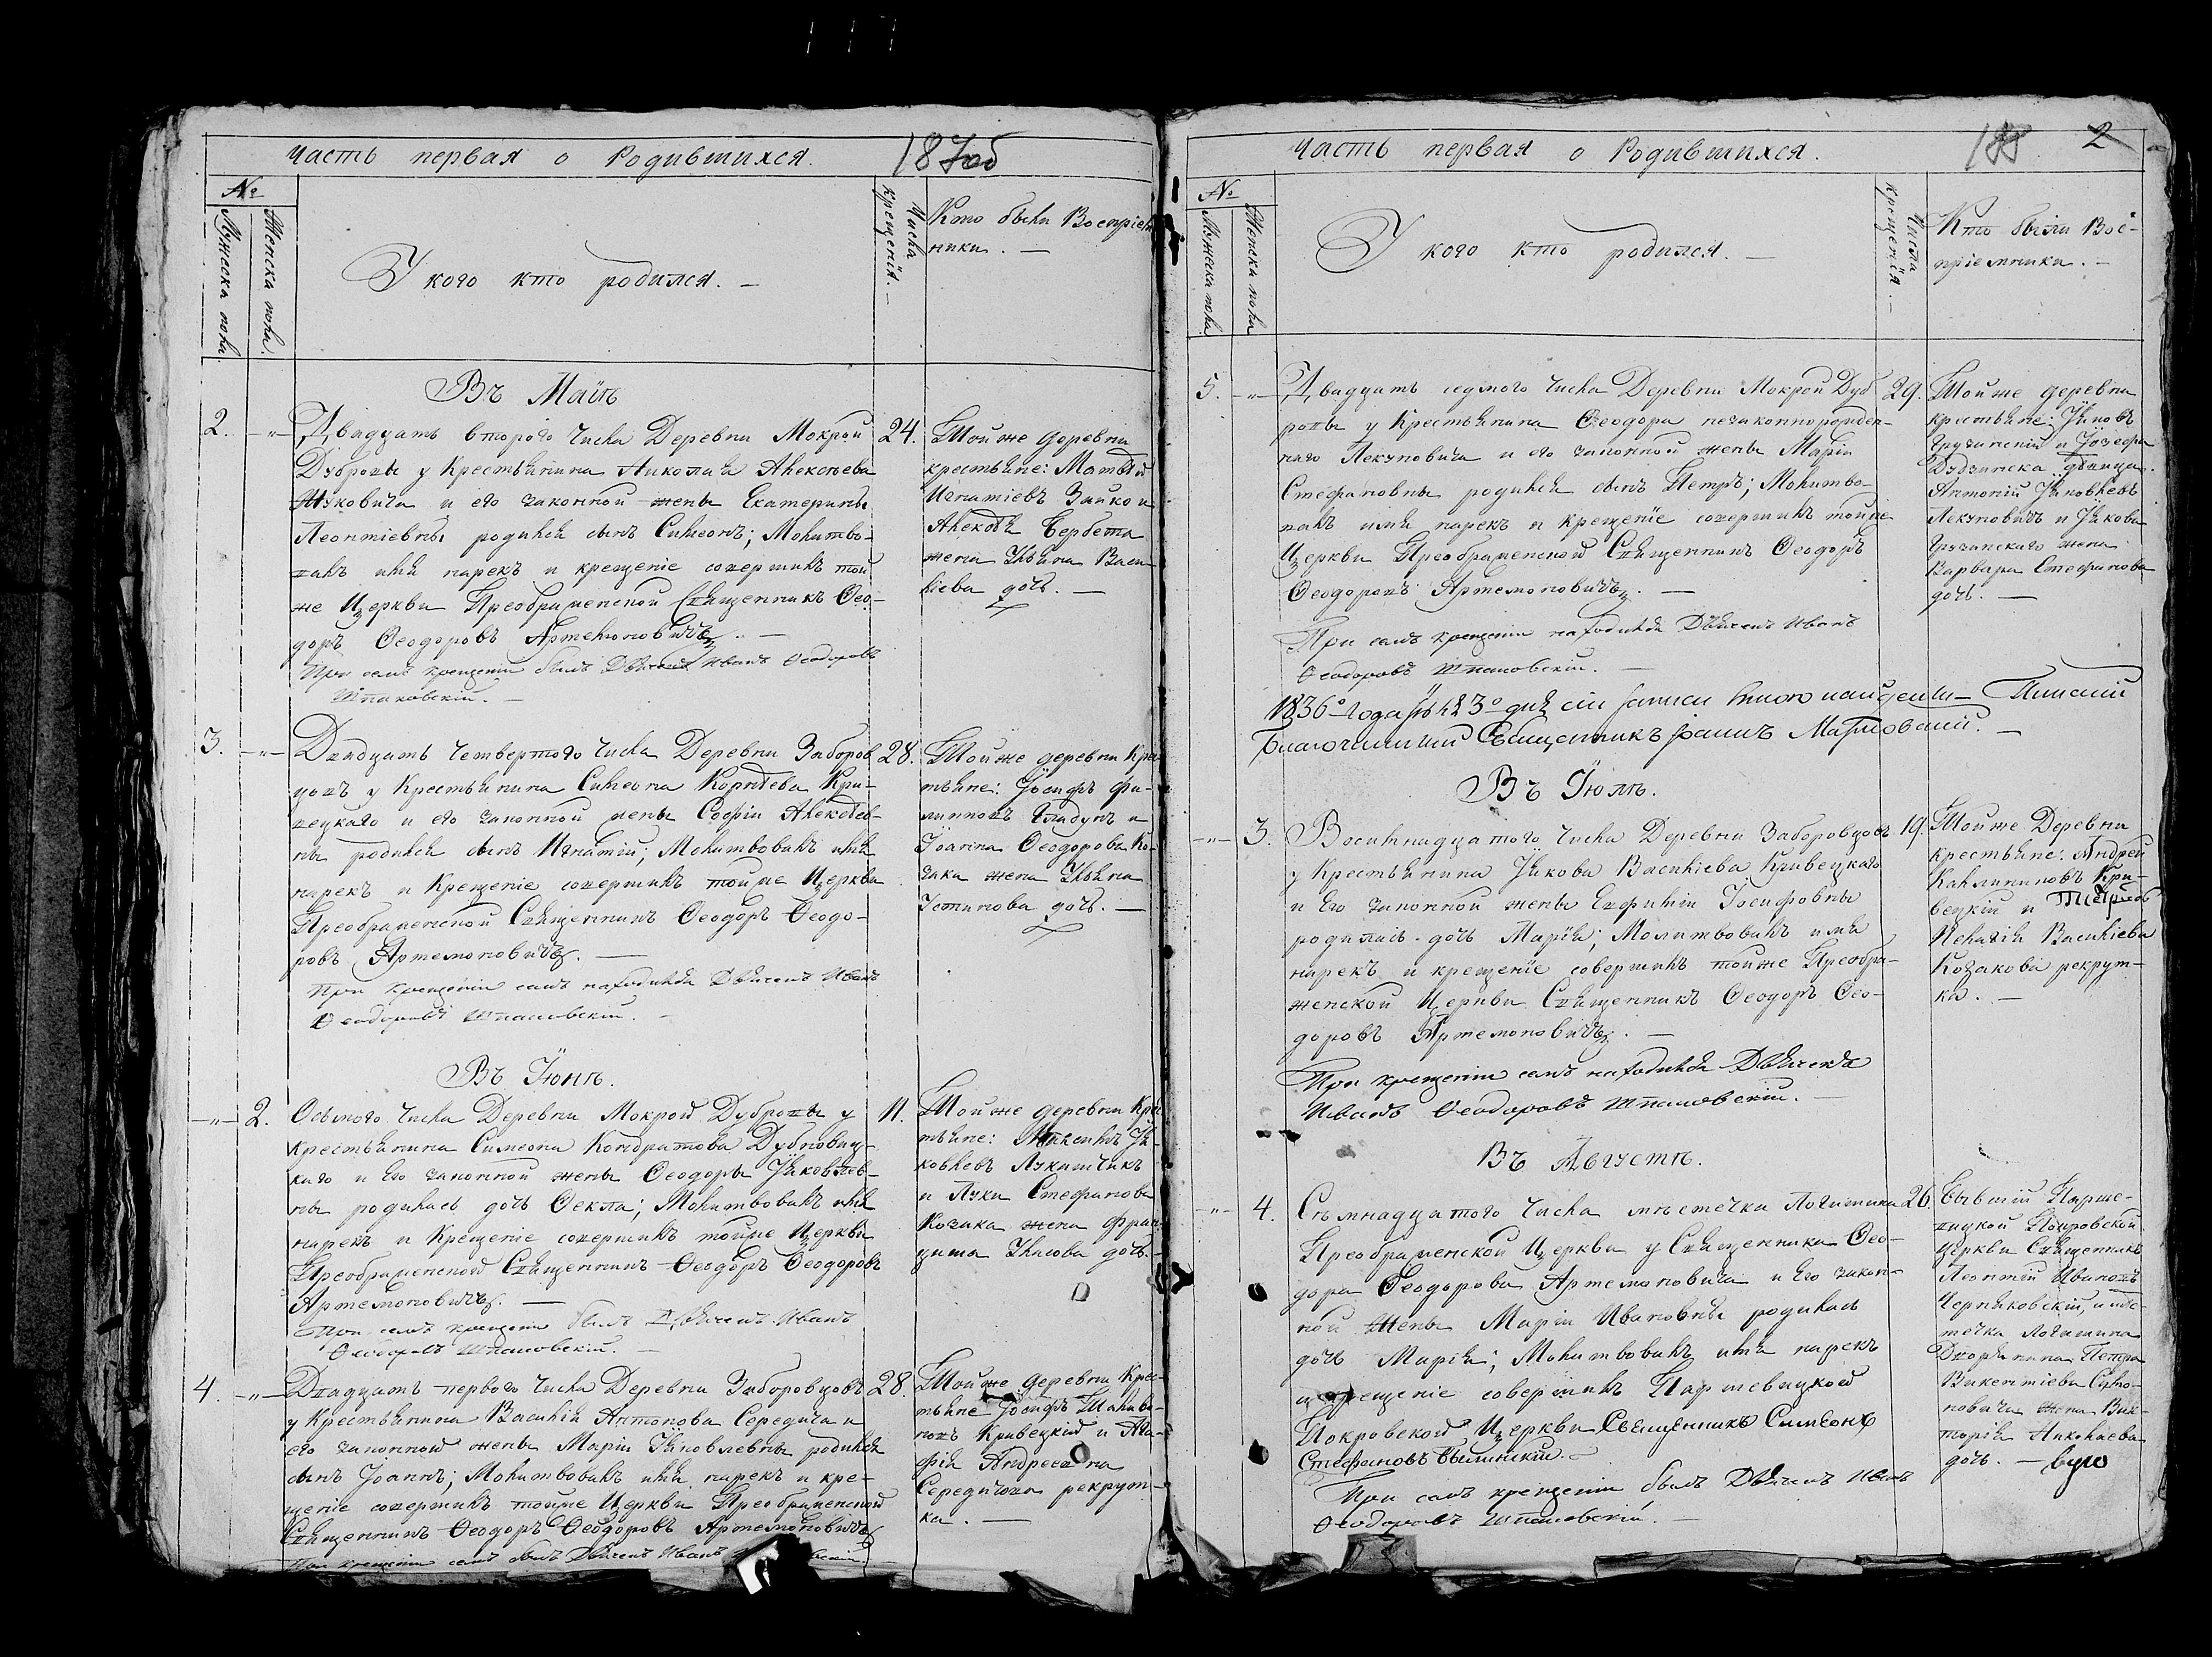 Часть первая о Родившихся. 187об
№
Мужеска пола.
Женска пола.
У кого кто родился. —
Числа
крещенія. —
Кто были Воспріем
ники. —
Въ Маіѣ
2. —„— Двадцать второго числа Деревни Мокрой 24.
Дубровы у Крестьянина Николая Алексѣева
Жуковича и его законной жены Екатерины
Леонтіевны родился сынъ Симеонъ; Молитво-
валъ имя нарекъ и крещеніе совершилъ той
же Церкви Преображенской Священникъ Ѳео-
доръ Ѳеодоровъ Артемоновичъ. —
При семъ крещеніи былъ Дьячекъ Иванъ Ѳеодоровъ
Шпаковскій. —
Тойже деревни
крестьяне: Матѳей
Игнатіевъ Зайко и
Алексѣя Бербета
жена Ульяна Васи
ліева дочь. —
3. —„— Двадцать четвертого числа Деревни Заборов 28.
цовъ у Крестьянина Симеона Корнѣева Кри-
вецкаго и его законной жены Софіи Алексѣев-
ны родился сынъ Игнатій; Молитвовалъ имя
нарекъ и Крещеніе совершилъ тойже Церкви
Преображенской Священникъ Ѳеодоръ Ѳеодо-
ровъ Артемоновичъ. —
При крещеніи семъ находился Дьячекъ Иванъ
Ѳеодоровъ Шпаковскій. —
Тойже деревни Крес
тьяне: Іосифъ Фи-
липповъ Гладунъ и
Іоанна Ѳеодорова Ко-
зака жена Ульяна
Устинова дочь. —
Въ Іюнѣ.
—„— 2. Осьмого числа Деревни Мокрой Дубровы у 11.
крестьянина Симеона Кондратова Дубновиц-
каго и Его законной жены Ѳеодоры Яковлев-
ны родилась дочь Ѳекла; Молитвовалъ имя
нарекъ и Крещеніе совершилъ тойже Церкви
Преображенской Священникъ Ѳеодоръ Ѳеодоровъ
Артемоновичъ. —
При семъ крещеніи былъ Дьячекъ Иванъ
Ѳеодоровъ Шпаковскій. —
Тойже деревни Крес
тьяне: Максимъ Я-
ковлевъ Лукашчикъ
и Луки Стефанова
Козака жена Фран
цишка дочь. —
4. —„— Двадцать первого числа Деревни Заборовцовъ 28.
у Крестьянина Василія Антонова Середича и
его законной жены Маріи Яковлевны родился
сынъ Іоаннъ; Молитвовалъ имя нарекъ и кре-
щеніе совершилъ тойже Церкви Преображенской
Священникъ Ѳеодоръ Ѳеодоровъ Артемоновичъ
При крещеніи семъ былъ Дьячекъ Иванъ
Тойже деревни Крес-
тьяне Іосифъ
Кривецкій и Ага-
фія Андреевна
Середичова рекрут-
ка. —
Часть первая о Родившихся. 188 2
№
Мужеска пола
Женска пола
У кого кто родился. —
Числа
крещенія. —
Кто были Вос-
пріемники. —
5. —„— Двадцать седмого числа Деревни Мокрой Дуб 29.
ровы у Крестьянина Ѳеодора незаконнорожден-
наго Лекуновича и его законной жены Маріи
Стефановны родился сынъ Петръ; Молитво-
валъ имя нарекъ и крещеніе совершилъ тойже
Церкви Преображенской Священникъ Ѳеодоръ
Ѳеодоровъ Артемоновичъ. —
При семъ крещеніи находился Дьячекъ Иванъ
Ѳеодоровъ Шпаковскій. —
Тойже деревни
крестьяне: Яковъ
Грузинскій и Іозефа
Дудзинска дѣвица.
Антоній Яковлевъ
Лекуновичъ и Якова
Грузинскаго жена
Варвара Стефанова
дочь. —
1836º Года 3º дня сіи записи
Благочинный Священникъ
Въ Іюлѣ.
—„— 3. Восимнадцатого числа Деревни Заборовцовъ 19.
у Крестьянина Якова Василіева Кривецкаго
и Его законной жены Евфиміи Іосифовны
родилась дочь Марія; Молитвовалъ имя
нарекъ и крещеніе совершилъ тойже Преобра-
женской Церкви Священникъ Ѳеодоръ Ѳео-
доровъ Артемоновичъ. —
При крещеніи семъ находился Дьячекъ
Иванъ Ѳеодоровъ Шпаковскій. —
Тойже Деревни
крестьяне: Андрей
Каллиниковъ Кри-
вецкій и
Пелагія Василіева
Козакова рекрут-
ка. —
Въ Августѣ.
—„— 4. Семнадцатого числа мѣстечка Логишина 26
Преображенской Церкви у Священника Ѳео-
дора Ѳеодорова Артемоновича и Его закон-
ной Жены Маріи Ивановны родилась
дочь Марія; Молитвовалъ имя нарекъ
и крещеніе совершилъ Паршевицкой
Покровской Церкви Священникъ Симеонъ
Стефановъ
При семъ крещеніи былъ Дьячекъ Иванъ
Ѳеодоровъ Шпаковскій. —
Бывшій Парше-
вицкой Покровской
Церкви Священникъ
Леонтій Ивановъ
Черняковскій, и мѣс-
течка Логишина
Дворянина Петра
Викентіева
жена Вик-
торія Николаева
дочь. —